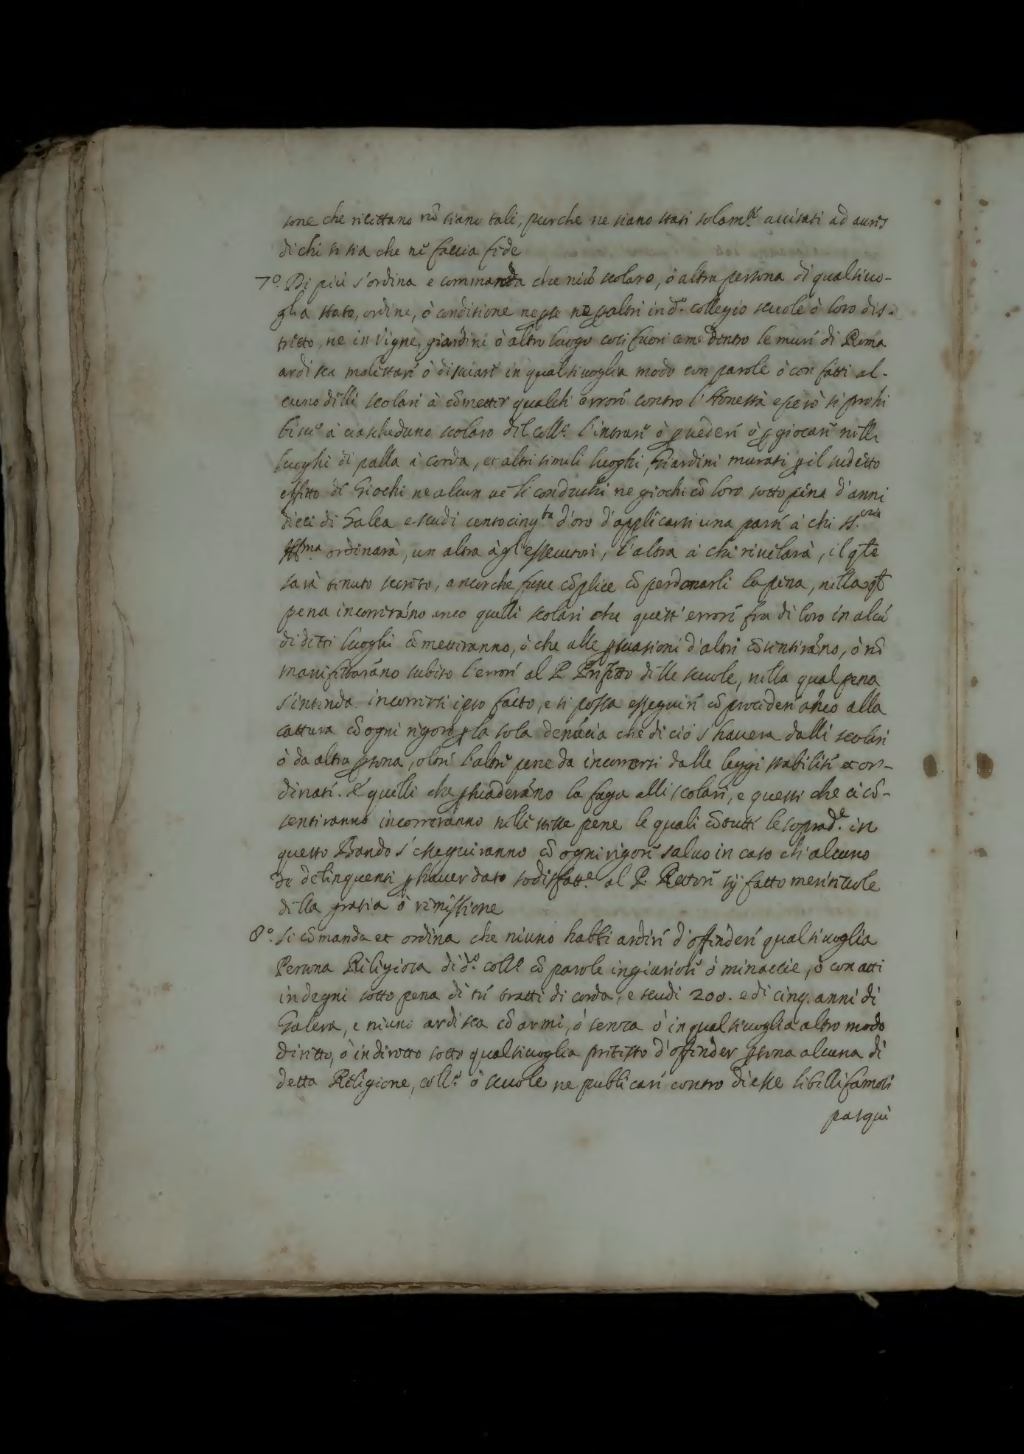 sone che ricettano nō siano tali, purche ne siano stati solam.te auisati ad aures
di chi si sia che ne faccia fide
7.º Di più s'ordina e commanda che niū scolaro, ò altra persona di qualsiuo-
glia stato, ordine, ò conditione ne per se ne per altri in d.º collegio scuole ò loro dis-
tretto, ne in vigne, giardini ò altro luogo cosi fuori come dentro le muri di Roma
ardisca molestare ò disuiare in qualsiuoglia modo con parole ò con fatti al-
cuno delli scolari à cōmetter qualche errore contro l'Honestà e però si prohi
bisce à ciascheduno scolaro del coll.º l'intrare ò ꝑ uedere ò ꝑ giocare nelli
luoghi di palla à corda, et altri simili luoghi, Giardini murati ꝑ il sudetto
effetto di Giochi ne alcun ue li conduchi ne giochi cō loro sotto pena d'anni
dieci di Galea e scudi centocinq.ta d'oro d'applicarsi una parte à chi S.
Ill.ma ordinarà, un altra à gl'essecutori, l'altra à chi riuelarà, il q̄le
sarà tenuto secreto, ancorche fusse cōplice cō perdonarli la pena, nella q̄le
pena incorrerāno anco quelli scolari che quest'errore fra di loro in alcū
di detti luoghi cōmetteranno, ò che alle ꝑsuasioni d'altri cōsentirāno, ò nō
manifestarāno subito l'errore al P. Prefetto delle scuole, nella qual pena
s'intenda incorrersi ipso facto, e si possa esseguire cō proceder anco alla
cattura cō ogni rigore ꝑ la sola denūcia che di ciò s'hauera dalli scolari
ò da altra ꝑsona, oltre l'altre pene da incorrersi dalle leggi stabilite et or-
dinate. E quelli che ꝑsuaderāno la fuga alli scolari, e questi che ci cō-
sentiranno incorreranno nelle stesse pene le quali cō tutte le soprad.e in
questo Bando s'esseguiranno cō ogni rigore saluo in caso che alcuno
de delinquenti ꝑ hauer dato sodisfatt.e al P. Rettore si sij fatto meriteuole
della gratia ò remissione
8.º Si cōmanda et ordina che niuno habbi ardire d'offendere qualsiuoglia
Persona Religiosa di d.º coll.º cō parole ingiuriose ò minaccie, ò con atti
indegni sotto pena di tre tratti di corda, e scudi 200. e di cinq. anni di
Galera, e niuno ardisca cō armi, ò senza ò in qualsiuoglia altro modo
diretto, ò indiretto sotto qualsiuoglia pretesto d'offender ꝑsona alcuna di
detta Religione, coll.º ò scuole ne publicare contro di esse libelli famosi
pasqui